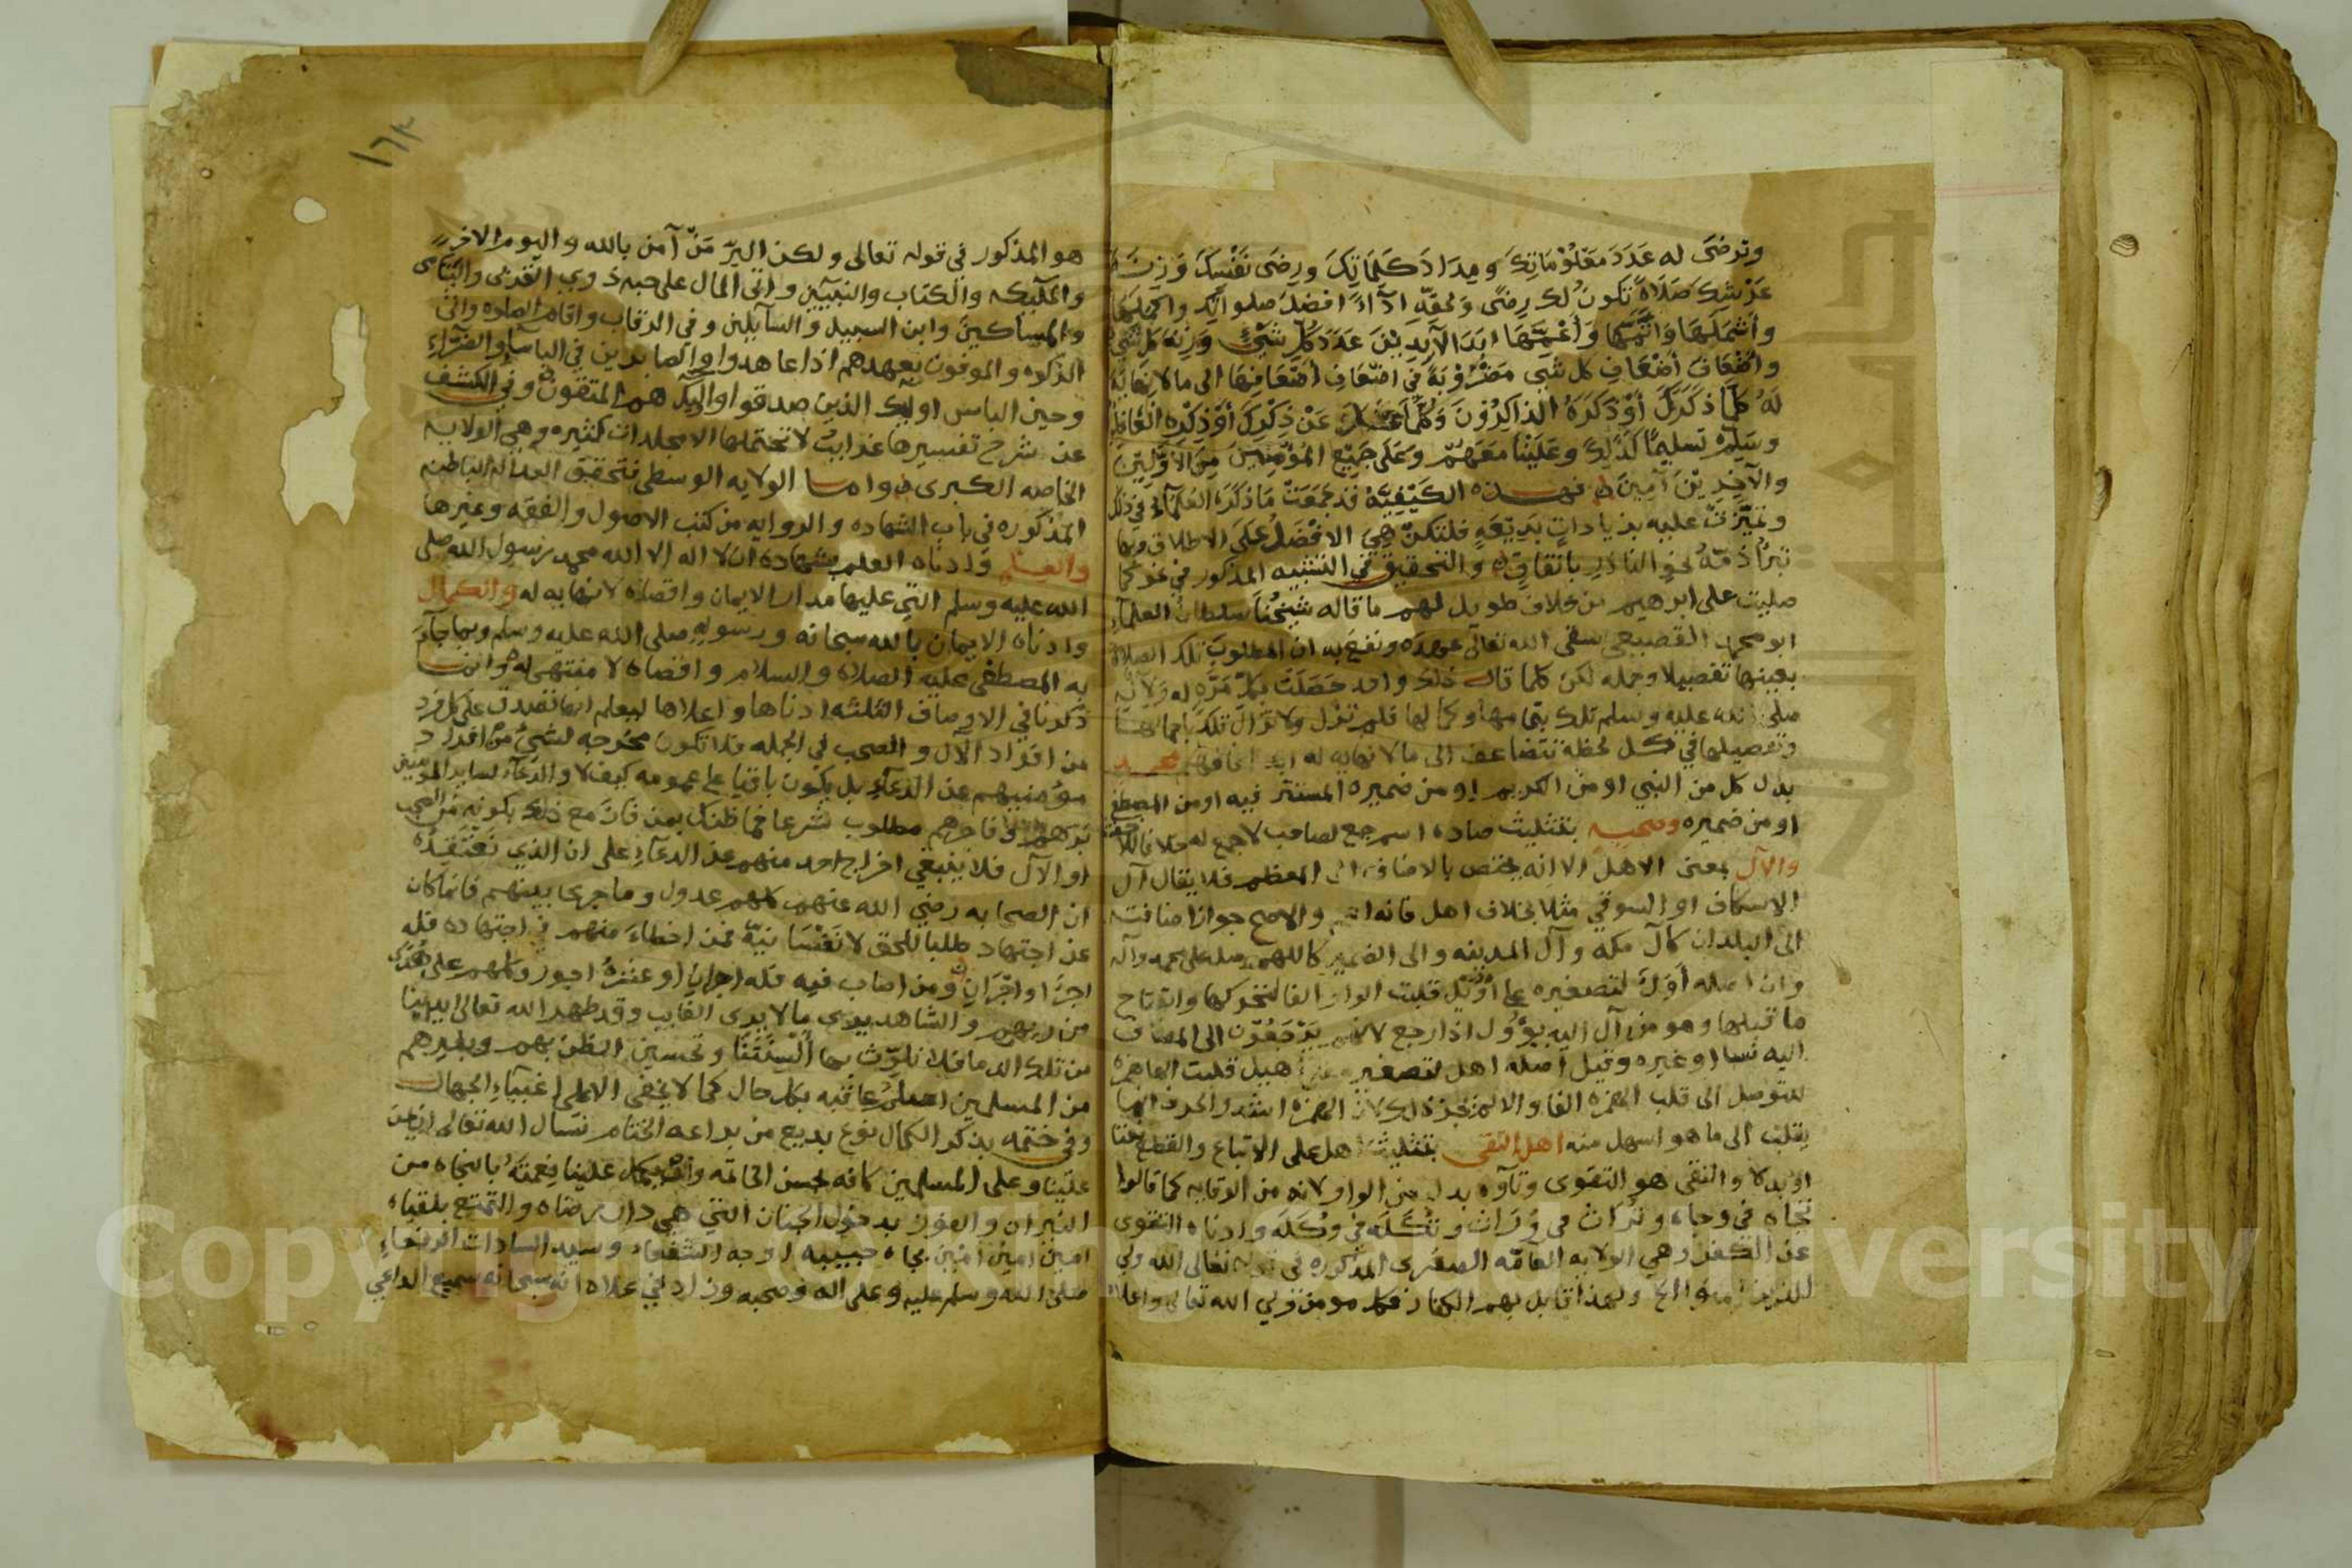 وترضى له عدد معلوماتك ومداد كلماتك ورضى نفسك وزنة
عرشك صلاة تكون لك رضى ولحقه اداء افضل صلواتك واكملها
وأشملها وأتمها وأعمها ابد الآبدين عدد كل شيئ وزنة كل شيئ
وأضعاف أضعاف كل شي مضروبة في اضعاف أضعافها الى ما لا نهاية
له كلما ذكرك أو ذكره الذاكرون وكلما غفل عن ذكرك أو ذكره الغافلون
وسلم تسليما كذلك وعلينا معهم وعلى جميع المؤمنين من الأولين
والآخرين آمين فهذه الكيفية قد جمعت ما ذكره العلماء في ذلك
وتميزت عليه بزيادات بديعة فلتكن هي الافضل على الاطلاق وبها
تبرأ ذمة نحو الناذر باتفاق والتحقيق في التشبيه المذكور في نحو كما
صليت على ابرهيم من خلاف طويل لهم ما قاله شيخنا سلطان العلماء
ابو محمد القصيعي سقى الله تعالى عهده ونفع به ان المطلوب تلك الصلاة
بعينها تفصيلا وجمله لكن كلما قال ذلك واحد حصلت بكل مرة له ولآله
صلى الله عليه وسلم تلك بتمامها وكمالها فلم تزل ولا تزال تلك باجمالها
وتفصيلها في كل لحظة تتضاعف الى ما لا نهاية له ابد محمد
بدل كل من النبي او من الكريم او من ضميره المستتر فيه او من المصطفى
او من ضميره وصحبه بتثليث صاده اسم جمع لصاحب لا جمع له خلافا للاخفش
والآل بمعنى الاهل الا انه يختص بالاضافة الى المعظم فلا يقال آل
الاسكاف او السوقي مثلا بخلاف اهل فانه اعم والاصح جواز اضافته
الى البلدان كآل مكه وآل المدينه والى الضمير كاللهم صل على محمد وآله
وان اصله أول لتصغيره على أويل قلبت الواو الفا لتحركها وانفتاح
ما قبلها وهو من آل اليه يؤول اذا رجع لانهم يرجعون الى المضاف
اليه نسبا او غيره وقيل أصله اهل لتصغيره على أهيل قلبت الهاء همزة
للتوصل الى قلب الهمزة الفا والا لم يجز ذلك لان الهمزة اشد والحرف انما
يقلب الى ما هو اسهل منه اهل التقى بتثليث اهل على الاتباع والقطع نعتا
او بدلا والتقى هو التقوى وتاؤه بدل من الواو لانه من الوقايه كما قالوا
تجاه في وجاه وتراث في وراث وتكله في وكلة وادناه التقوى
عن الكفر وهي الولايه العامه الصغرى المذكوره في قوله تعالى الله ولي
الذين آمنوا الخ ولهذا قابل بهم الكفار فكل مومن ولي الله تعالى واعلاه
١٦٣
هو المذكور في قوله تعالى ولكن البر من آمن بالله واليوم الاخر
والملآئكه والكتاب والنبيين واتى المال على حبه ذوي القربى واليتامى
والمساكين وابن السبيل والسآيلين وفي الرقاب واقام الصلوه واتى
الزكوه والموفون بعهدهم اذا عاهدوا والصابرين في الباسآء والضرآء
وحين الباس اوليك الذين صدقوا واوليك هم المتقون وفي الكشف
عن شرح تفسيرها غرايب لا تحتملها الا مجلدات كثيره وهي الولايه
الخاصه الكبرى واما الولايه الوسطى فتحقق العداله الباطنه
المذكوره في باب الشهاده والروايه من كتب الاصول والفقه وغيرها
والعلم وادناه العلم بشهادة ان لا اله الا الله محمد رسول الله صلى
الله عليه وسلم التي عليها مدار الايمان واقصاه لا نهايه له والكمال
وادناه الايمان بالله سبحانه ورسوله صلى الله عليه وسلم وبما جآء
به المصطفى عليه الصلاة والسلام واقصاه لا منتهى له وانما
ذكرنا في الاوصاف الثلثه ادناها واعلاها ليعلم انها تصدق على كل فرد
من افراد الآل والصحب في الجمله فلا تكون مخرجه لشيئ من افراد
مؤمنيهم عن الدعآء بل يكون باقيا على عمومه كيف لا والدعآء لساير المومنين
برهم وفاجرهم مطلوب شرعا فما ظنك بمن فاز مع ذلك بكونه من الصحب
او الآل فلا ينبغي اخراج احد منهم عن الدعآء على ان الذي نعتقده
ان الصحابه رضي الله عنهم كلهم عدول وما جرى بينهم فانما كان
عن اجتهاد طلبا للحق لا نفسانية فمن اخطاء منهم في اجتهاده فله
اجر او اجران ومن اصاب فيه فله اجران او عشرة اجور وكلهم على هدى
من ربهم والشاهد يرى ما لا يرى الغايب وقد طهر الله تعالى ايدينا
من تلك الدما فلا نلوث بها ألسنتنا وتحسين الظن بهم وبغيرهم
من المسلمين اسلم عاقبه بكل حال كما لا يخفى الا على اغبياء الجهال
وفي ختمه بذكر الكمال نوع بديع من براعة الختام نسال الله تعالى ان يمن
علينا وعلى المسلمين كافه بحسن الخاتمه وان يكمل علينا نعمته بالنجاه من
النيران والفوز بدخول الجنان التي هي دار رضاه والتمتع بلقياه
امين امين امين بجاه حبيبه اوجه الشفعاء وسيد السادات الرفعاء
صلى الله وسلم عليه وعلى اله وصحبه وزاد في علاه انه سبحانه سميع الداعي
Copyright © King Saud University